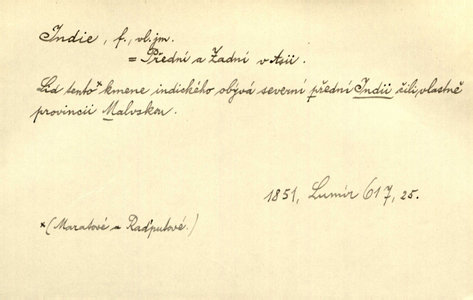 Indie, f., vl. jm.
= Přední a Zadní v Asii.
Lid tento* kmene indického obývá severní přední Indii čili, vlastně
provincii Malvskou.
1851, Lumír 617, 25.
*(Maratové a Raďputové.)